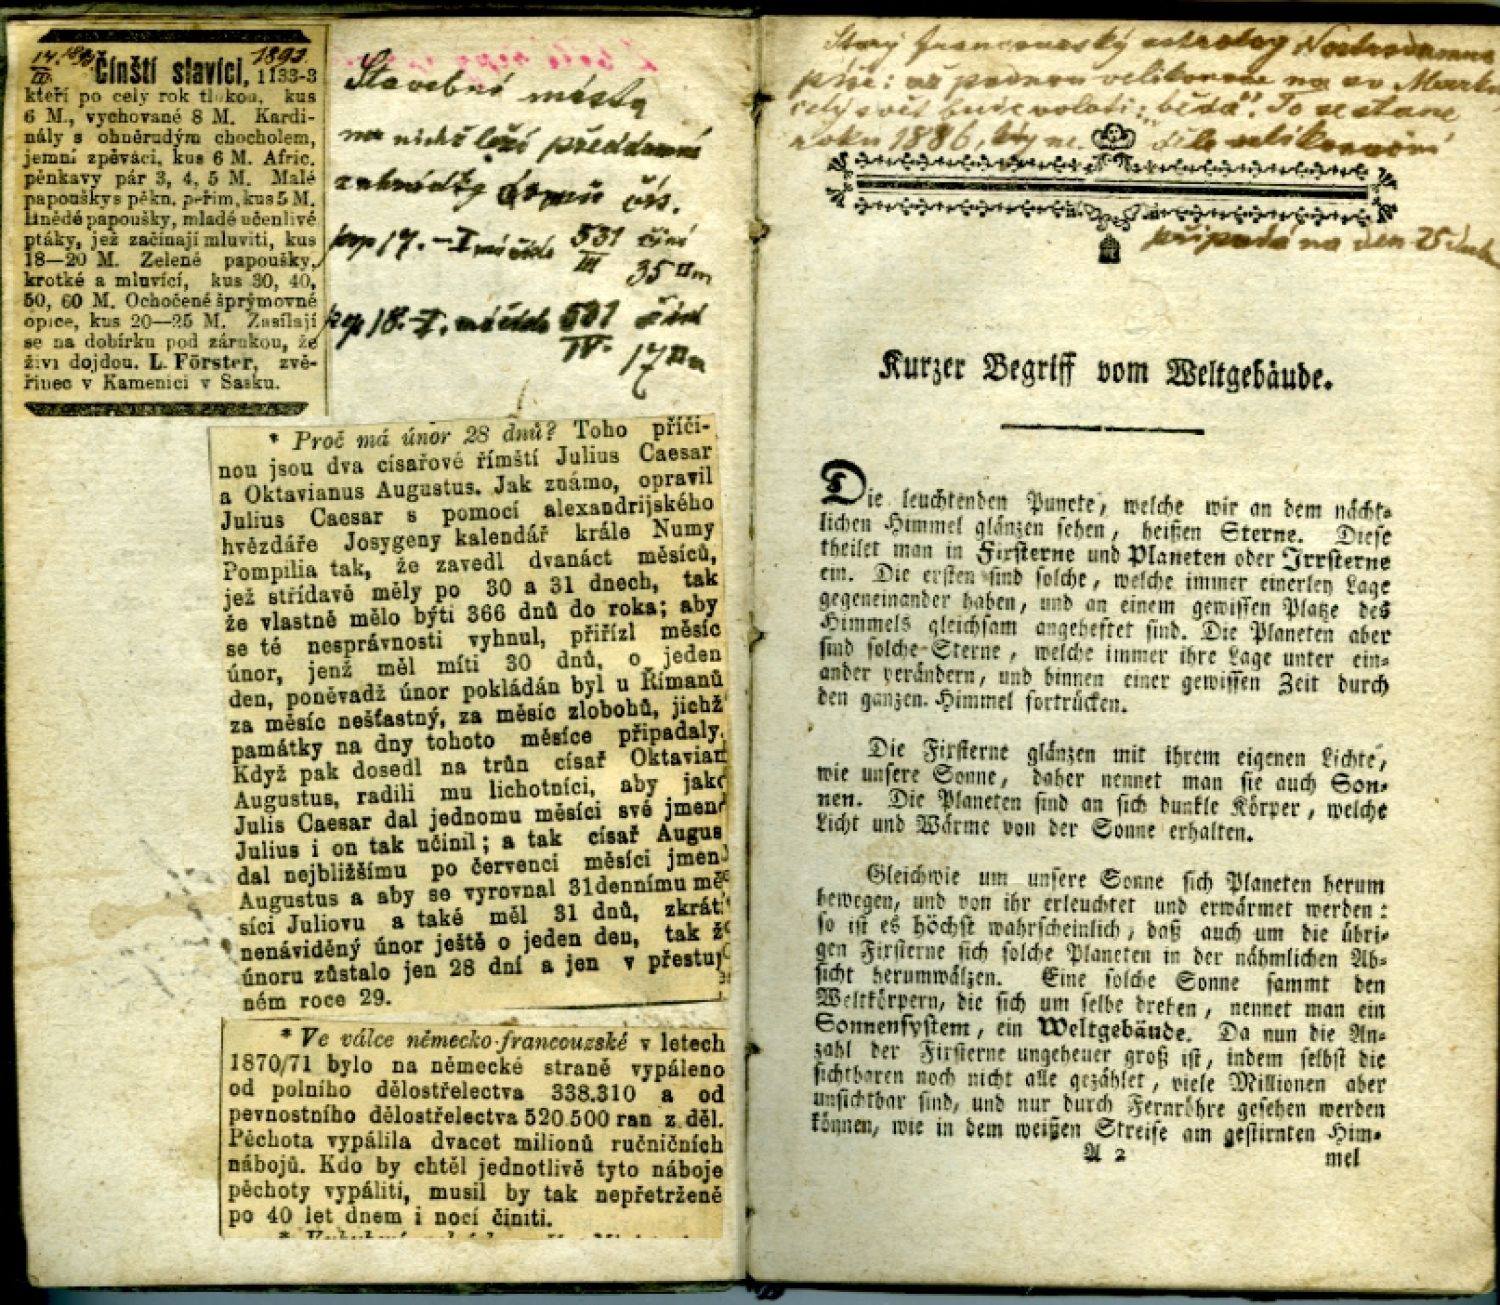 14. 18/4 1893
IV.
Čínští slavíci, 1133-3
kteří po cely rok tlukou, kus
6 M., vychované 8 M. Kardi-
nály s ohněrudým chocholem,
jemní zpěváci, kus 6 M. Afric.
pěnkavy pár 3, 4, 5 M. Malé
papouškys pěkn. peřím, kus 5 M.
Hnědé papoušky, mladé učenlivé
ptáky, jež začínají mluviti, kus
18—20 M. Zelené papoušky,
krotké a mluvící, kus 30, 40,
50, 60 M. Ochočené šprýmovné
opice, kus 20—25 M. Zasílají
se na dobírku pod zárukou, že
živi dojdou. L. Förster, zvě-
řinec v Kamenici v Sasku.
Stavební místa
na nichž leží předdomní
zahrádky domů čís.
pop 17. – I. má číslo 531 činí
III 35 □m
pop 18. – I. má číslo 531 činí
IV. 17 □m
* Proč má únor 28 dnů? Toho příči-
nou jsou dva císařové římští Julius Caesar
a Oktavianus Augustus. Jak známo, opravil
Julius Caesar s pomocí alexandrijského
hvězdáře Josygeny kalendář krále Numy
Pompilia tak, že zavedl dvanáct měsíců,
jež střídavě měly po 30 a 31 dnech, tak
že vlastně mělo býti 366 dnů do roka; aby
se té nesprávnosti vyhnul, přiřízl měsíc
únor, jenž měl míti 30 dnů, o jeden
den, poněvadž únor pokládán byl u Římanů
za měsíc nešťastný, za měsíc zlobohů, jichž
památky na dny tohoto měsíce připadaly.
Když pak dosedl na trůn císař Oktavian
Augustus, radili mu lichotníci, aby jako
Julis Caesar dal jednomu měsíci své jmeno
Julius i on tak učinil; a tak císař Augus
dal nejbližšímu po červenci měsíci jmen
Augustus a aby se vyrovnal 31dennímu mě
síci Juliovu a také měl 31 dnů, zkrát
nenáviděný únor ještě o jeden den, tak ž
únoru zůstalo jen 28 dní a jen v přestup
ném roce 29.
* Ve válce německo-francouzské v letech
1870/71 bylo na německé straně vypáleno
od polního dělostřelectva 338.310 a od
pevnostního dělostřelectva 520.500 ran z děl.
Pěchota vypálila dvacet milionů ručničních
nábojů. Kdo by chtěl jednotlivě tyto náboje
pěchoty vypáliti, musil by tak nepřetrženě
po 40 let dnem i nocí činiti.
Starý francouzský astrolog Nostradamus
píše: až padnou velikonoce na sv Marka
celý svět bude volati: „běda". To se stane
roku 1886, kdy ne. děle velikonoční
připadá na den 25 dub
Kurzer Begriff vom Weltgebäude.
Die leuchtenden Puncte, welche wir an dem nächt-
lichen Himmel glänzen sehen, heißen Sterne. Diese
theilet man in Fixsterne und Planeten oder Irrsterne
ein. Die ersten sind solche, welche immer einerley Lage
gegeneinander haben, und an einem gewissen Platze des
Himmels gleichsam angeheftet sind. Die Planeten aber
sind solche Sterne, welche immer ihre Lage unter ein-
ander verändern, und binnen einer gewissen Zeit durch
den ganzen Himmel fortrücken.
Die Fixsterne glänzen mit ihrem eigenen Lichte,
wie unsere Sonne, daher nennet man sie auch Son-
nen. Die Planeten sind an sich dunkle Körper, welche
Licht und Wärme von der Sonne erhalten.
Gleichwie um unsere Sonne sich Planeten herum
bewegen, und von ihr erleuchtet und erwärmet werden:
so ist es höchst wahrscheinlich, daß auch um die übri-
gen Fixsterne sich solche Planeten in der nähmlichen Ab-
sicht herumwälzen. Eine solche Sonne sammt den
Weltkörpern, die sich um selbe drehen, nennet man ein
Sonnensystem, ein Weltgebäude. Da nun die An-
zahl der Fixsterne ungeheuer groß ist, indem selbst die
sichtbaren noch nicht alle gezählet, viele Millionen aber
unsichtbar sind, und nur durch Fernröhre gesehen werden
können, wie in dem weißen Streife am gestirnten Him-
A 2 mel